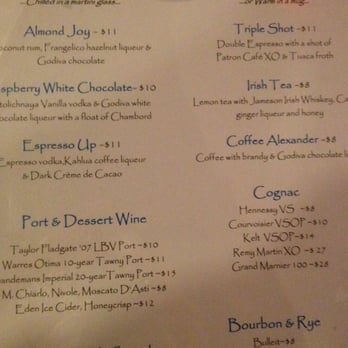 ...Chilled in a martini glass...
Almond Joy - $11
coconut rum, Frangelico hazelnut liqueur &
Godiva chocolate
Raspberry White Chocolate- $10
Stolichnaya Vanilla vodka & Godiva white
chocolate liqueur with a float of Chambord
Espresso Up ~$11
Espresso vodka, Kahlua coffee liqueur
& Dark Crème de Cacao
Port & Dessert Wine
Taylor Fladgate '07 LBV Port ~$10
Warres Otima 10-year Tawny Port ~$11
Sandemans Imperial 20-year Tawny Port ~$15
M. Chiarlo, Nivole, Moscato D'Asti ~$8
Eden Ice Cider, Honeycrisp ~$12
...or Warm in a mug...
Triple Shot ~$11
Double Espresso with a shot of
Patron Café XO & Tuaca froth
Irish Tea ~$8
Lemon tea with Jameson Irish Whiskey,
ginger liqueur and honey
Coffee Alexander ~$8
Coffee with brandy & Godiva chocolate
Cognac
Hennessy VS ~$8
Courvoisier VSOP ~$10
Kelt VSOP ~$14
Remy Martin XO ~$27
Grand Marnier 100 ~$28
Bourbon & Rye
Bulleit ~$8